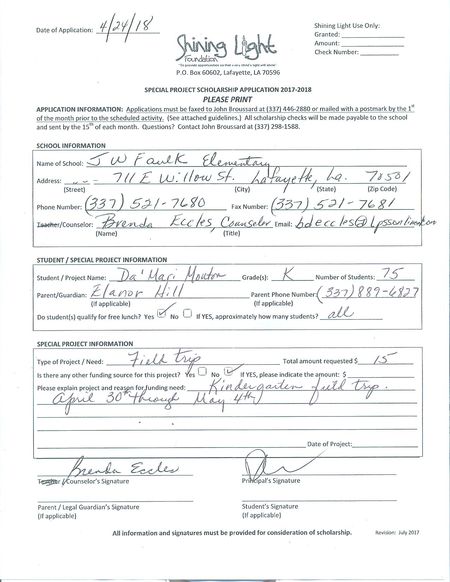 Date of Application: 4/24/18
Shining Light
Foundation
P.O. Box 60602, Lafayette, LA 70596
Shining Light Use Only:
Granted:
Amount:
Check Number:
SPECIAL PROJECT SCHOLARSHIP APPLICATION 2017-2018
PLEASE PRINT
APPLICATION INFORMATION: Applications must be faxed to John Broussard at (337) 446-2880 or mailed with a postmark by the 1st
of the month prior to the scheduled activity. (See attached guidelines.) All scholarship checks will be made payable to the school
and sent by the 15th of each month. Questions? Contact John Broussard at (337) 298-1588.
SCHOOL INFORMATION
Name of School: J W Faulk Elementary
Address: 711 E Willow St. Lafayette, La. 70501
(Street) (City) (State) (Zip Code)
Phone Number: (337) 521-7680 Fax Number: (337) 521-7681
Teacher/Counselor: Brenda Eccles, Counselor Email: bdeccles@
(Name) (Title)
STUDENT / SPECIAL PROJECT INFORMATION
Student / Project Name: Da'Mari Mouton Grade(s): K Number of Students: 75
Parent/Guardian: Elanor Hill Parent Phone Number: (337) 889-6827
(If applicable) (If applicable)
Do student(s) qualify for free lunch? Yes No If YES, approximately how many students? all
SPECIAL PROJECT INFORMATION
Type of Project / Need: Field trip Total amount requested $ 15
Is there any other funding source for this project? Yes No If YES, please indicate the amount: $
Please explain project and reason for funding need: Kindergarten field trip.
April 30th through May 4th
Date of Project:
Brenda Eccles
Teacher/Counselor's Signature Principal's Signature
Parent / Legal Guardian's Signature Student's Signature
(If applicable) (If applicable)
All information and signatures must be provided for consideration of scholarship. Revision: July 2017